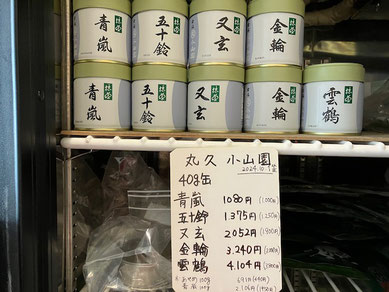 青嵐 五十鈴 又玄 金輪
抹茶 抹茶 抹茶 抹茶
青嵐 五十鈴 又玄 金輪 雲鶴
抹茶 抹茶 抹茶 抹茶 抹茶
丸久 小山園
2024.10.
40g缶
青嵐 1080円 (1,000)
五十鈴 1.375円 (1,250)
又玄 2052円 (1,900)
金輪 3.240円
雲鶴 4.104円